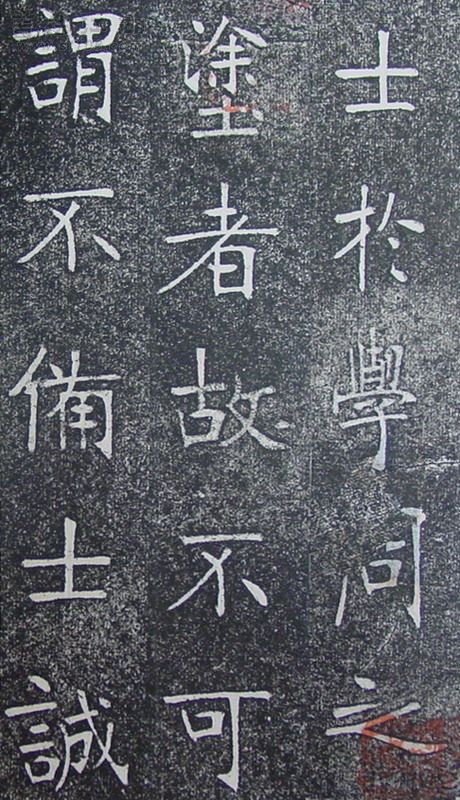 士於學問之
塗者故不可
謂不備士誠